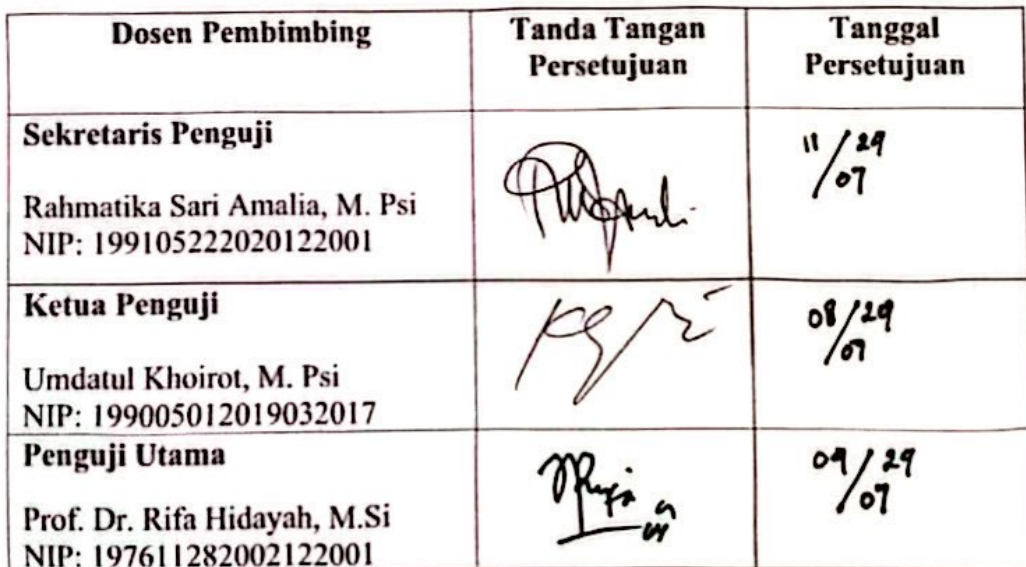 Dosen Pembimbing
Tanda Tangan
Persetujuan
Tanggal
Persetujuan
Sekretaris Penguji
Rahmatika Sari Amalia, M. Psi
NIP: 199105222020122001
11/29
07
Ketua Penguji
Umdatul Khoirot, M. Psi
NIP: 199005012019032017
08/29
07
Penguji Utama
Prof. Dr. Rifa Hidayah, M.Si
NIP: 197611282002122001
09/29
07